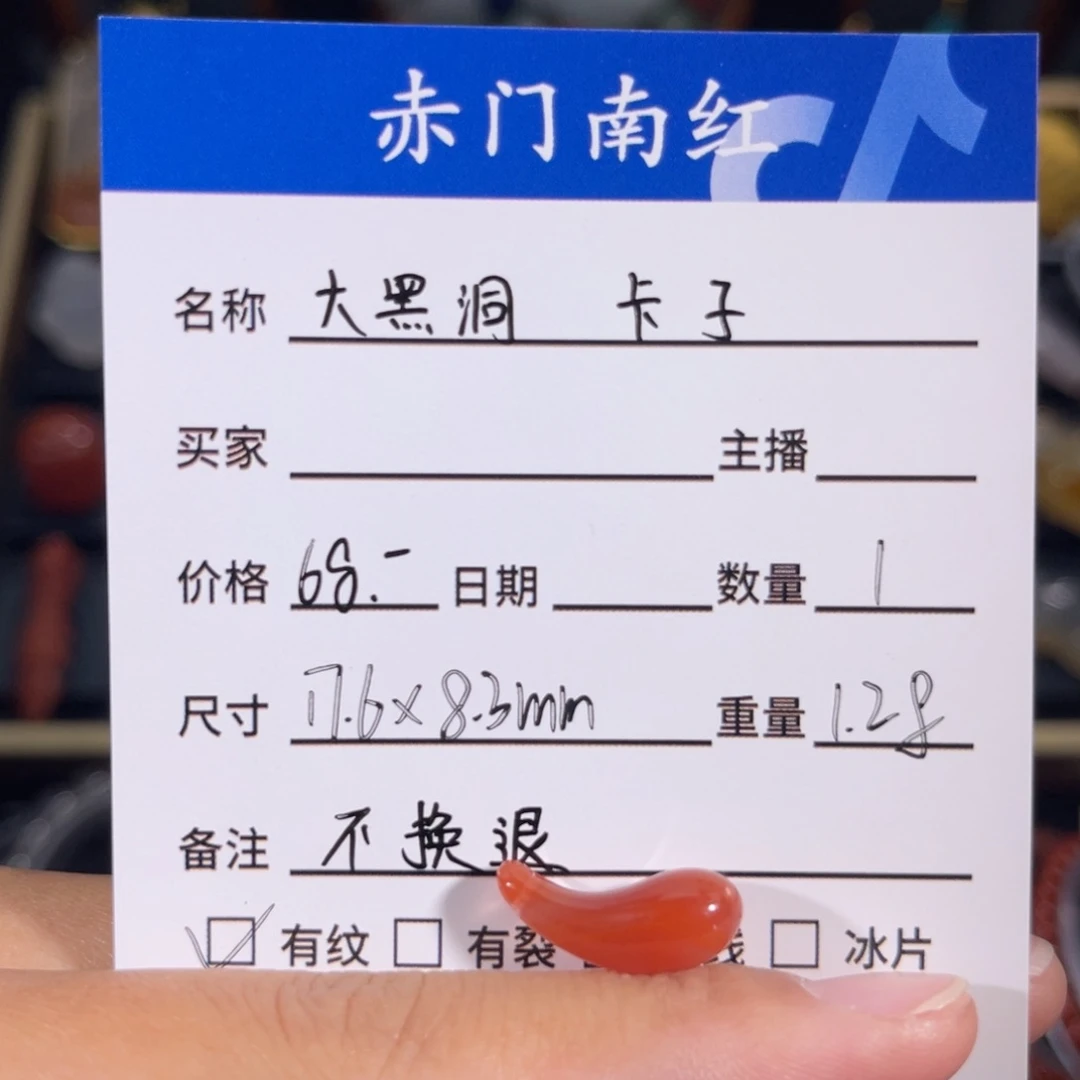 赤门南红
名称 大黑洞 卡子
买家 主播
价格 68.- 日期 数量 1
尺寸 17.6×8.3mm 重量 1.2g
备注 不换退
有纹 有裂 冰片